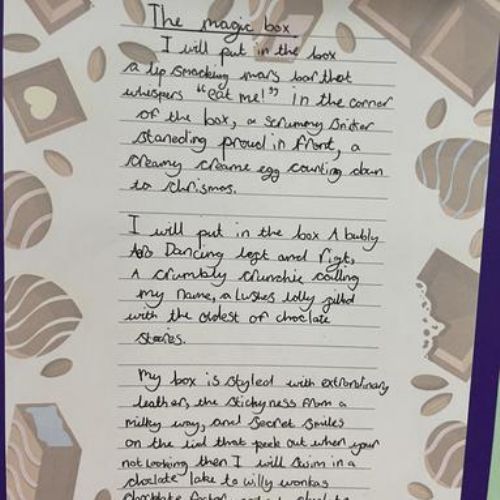 The magic box
I will put in the box
a lip smacking mars bar that
whispers "eat me!" in the corner
of the box, a scrummy Snicker
staneding proud in front, a
creamy creame egg counting down
to chrismas.
I will put in the box A bubly
Dancing left and rigt,
A crumbly crunchie calling
my name, a lushes lolly filled
with the oldest of choclate
stories.
My box is styled with extrordinary
leather, the stickyness from a
milky way, and secret smiles
on the lid that peek out when your
not looking then I will swim in a
choclate lake to willy wonkas